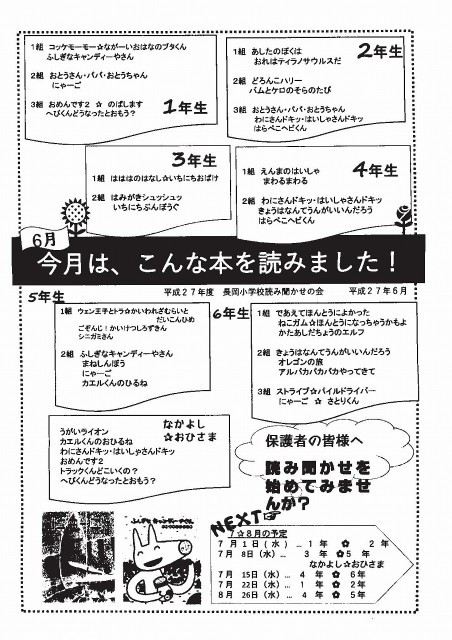 1組 コッケモーモー☆ながーいおはなのブタくん
ふしぎなキャンディーやさん
2組 おとうさん・パパ・おとうちゃん
にゃーご
3組 おめんです2 ☆ のばします
へびくんどうなったとおもう?
1年生
2年生
1組 あしたのぼくは
おれはティラノサウルスだ
2組 どろんこハリー
バムとケロのそらのたび
3組 おとうさん・パパ・おとうちゃん
わにさんドキッ・はいしゃさんドキッ
はらぺこヘビくん
3年生
1組 はははのはなし☆いちにちおばけ
2組 はみがきシュッシュッ
いちにちぶんぼうぐ
4年生
1組 えんまのはいしゃ
まわるまわる
2組 わにさんドキッ・はいしゃさんドキッ
きょうはなんてうんがいいんだろう
はらぺこヘビくん
6月
今月は、こんな本を読みました!
平成27年度 長岡小学校読み聞かせの会 平成27年6月
5年生
1組 ウェン王子とトラ☆かいわれざむらいと
だいこんひめ
ごぞんじ!かいけつしろずきん
シニガミさん
2組 ふしぎなキャンディーやさん
まねしんぼう
にゃーご
カエルくんのひるね
6年生
1組 であえてほんとうによかった
ねこガム☆ほんとうになっちゃうかもよ
かたあしだちょうのエルフ
2組 きょうはなんてうんがいいんだろう
オレゴンの旅
アルパカパカパカやってきて
3組 ストライプ☆パイルドライバー
にゃーご ☆ さとりくん
なかよし
☆おひさま
うがいライオン
カエルくんのおひるね
わにさんドキッ・はいしゃさんドキッ
おめんです2
トラックくんどこいくの?
へびくんどうなったとおもう?
保護者の皆様へ
読み聞かせを
始めてみませ
んか?
NEXT☞
7☆8月の予定
7月 1日(水)… 1年 ✿ 2年
7月 8日(水)… 3年 ✿5年
なかよし☆おひさま
7月 15日(水)… 4年 ✿ 6年
7月 22日(水)… 1年 ✿ 2年
8月 26日(水)… 4年 ✿ 5年
ふしぎなキャンディーやさん